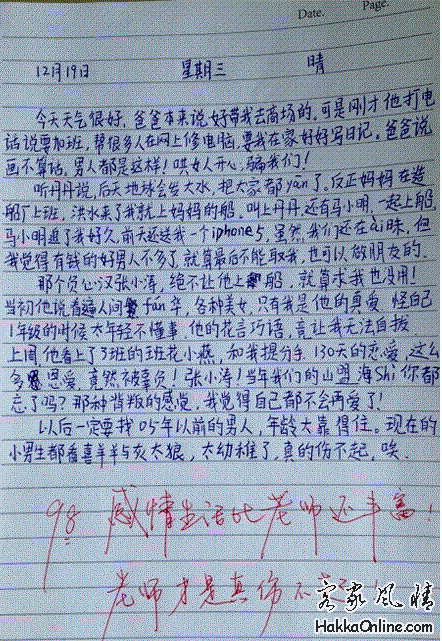 Date.
Page.
12月19日 星期三 晴
今天天气很好,爸爸本来说好带我去商场的,可是刚才他打电
话说要加班,帮很多人在网上修电脑,要我在家好好写日记。爸爸说
画不算话,男人都是这样!哄女人开心,骗我们!
听丹丹说,后天地球会发大水,把大家都yān了。反正妈妈在造
船厂上班,洪水来了我就上妈妈的船。叫上丹丹,还有马小明,一起上船,
马小明追了我好久,前天还送我一个iphone5,虽然我们还在ai昧,但
我觉得有钱的好男人不多了,就算最后不能取我,也可以做朋友的。
那个负心汉张小涛,绝不让他上船,就算求我也没用!
当初他说看遍人间fán华,各种美女,只有我是他的真爱,怪自己
1年级的时候太年轻不懂事,他的花言巧语,竟让我无法自拔
上周他看上了3班的班花小燕,和我提分手,130天的恋爱,这么
多恩爱,竟然被辜负!张小涛!当年我们的山盟海Shi你都
忘了吗?那种背叛的感觉,我觉得自己都不会再爱了!
以后一定要找05年以前的男人,年龄大靠得住。现在的
小男生都看喜羊羊与灰太狼,太幼稚了,真的伤不起,唉.
98 感情生活比老师还丰富!
老师才是真伤不起!
客家风情
HakkaOnline.com